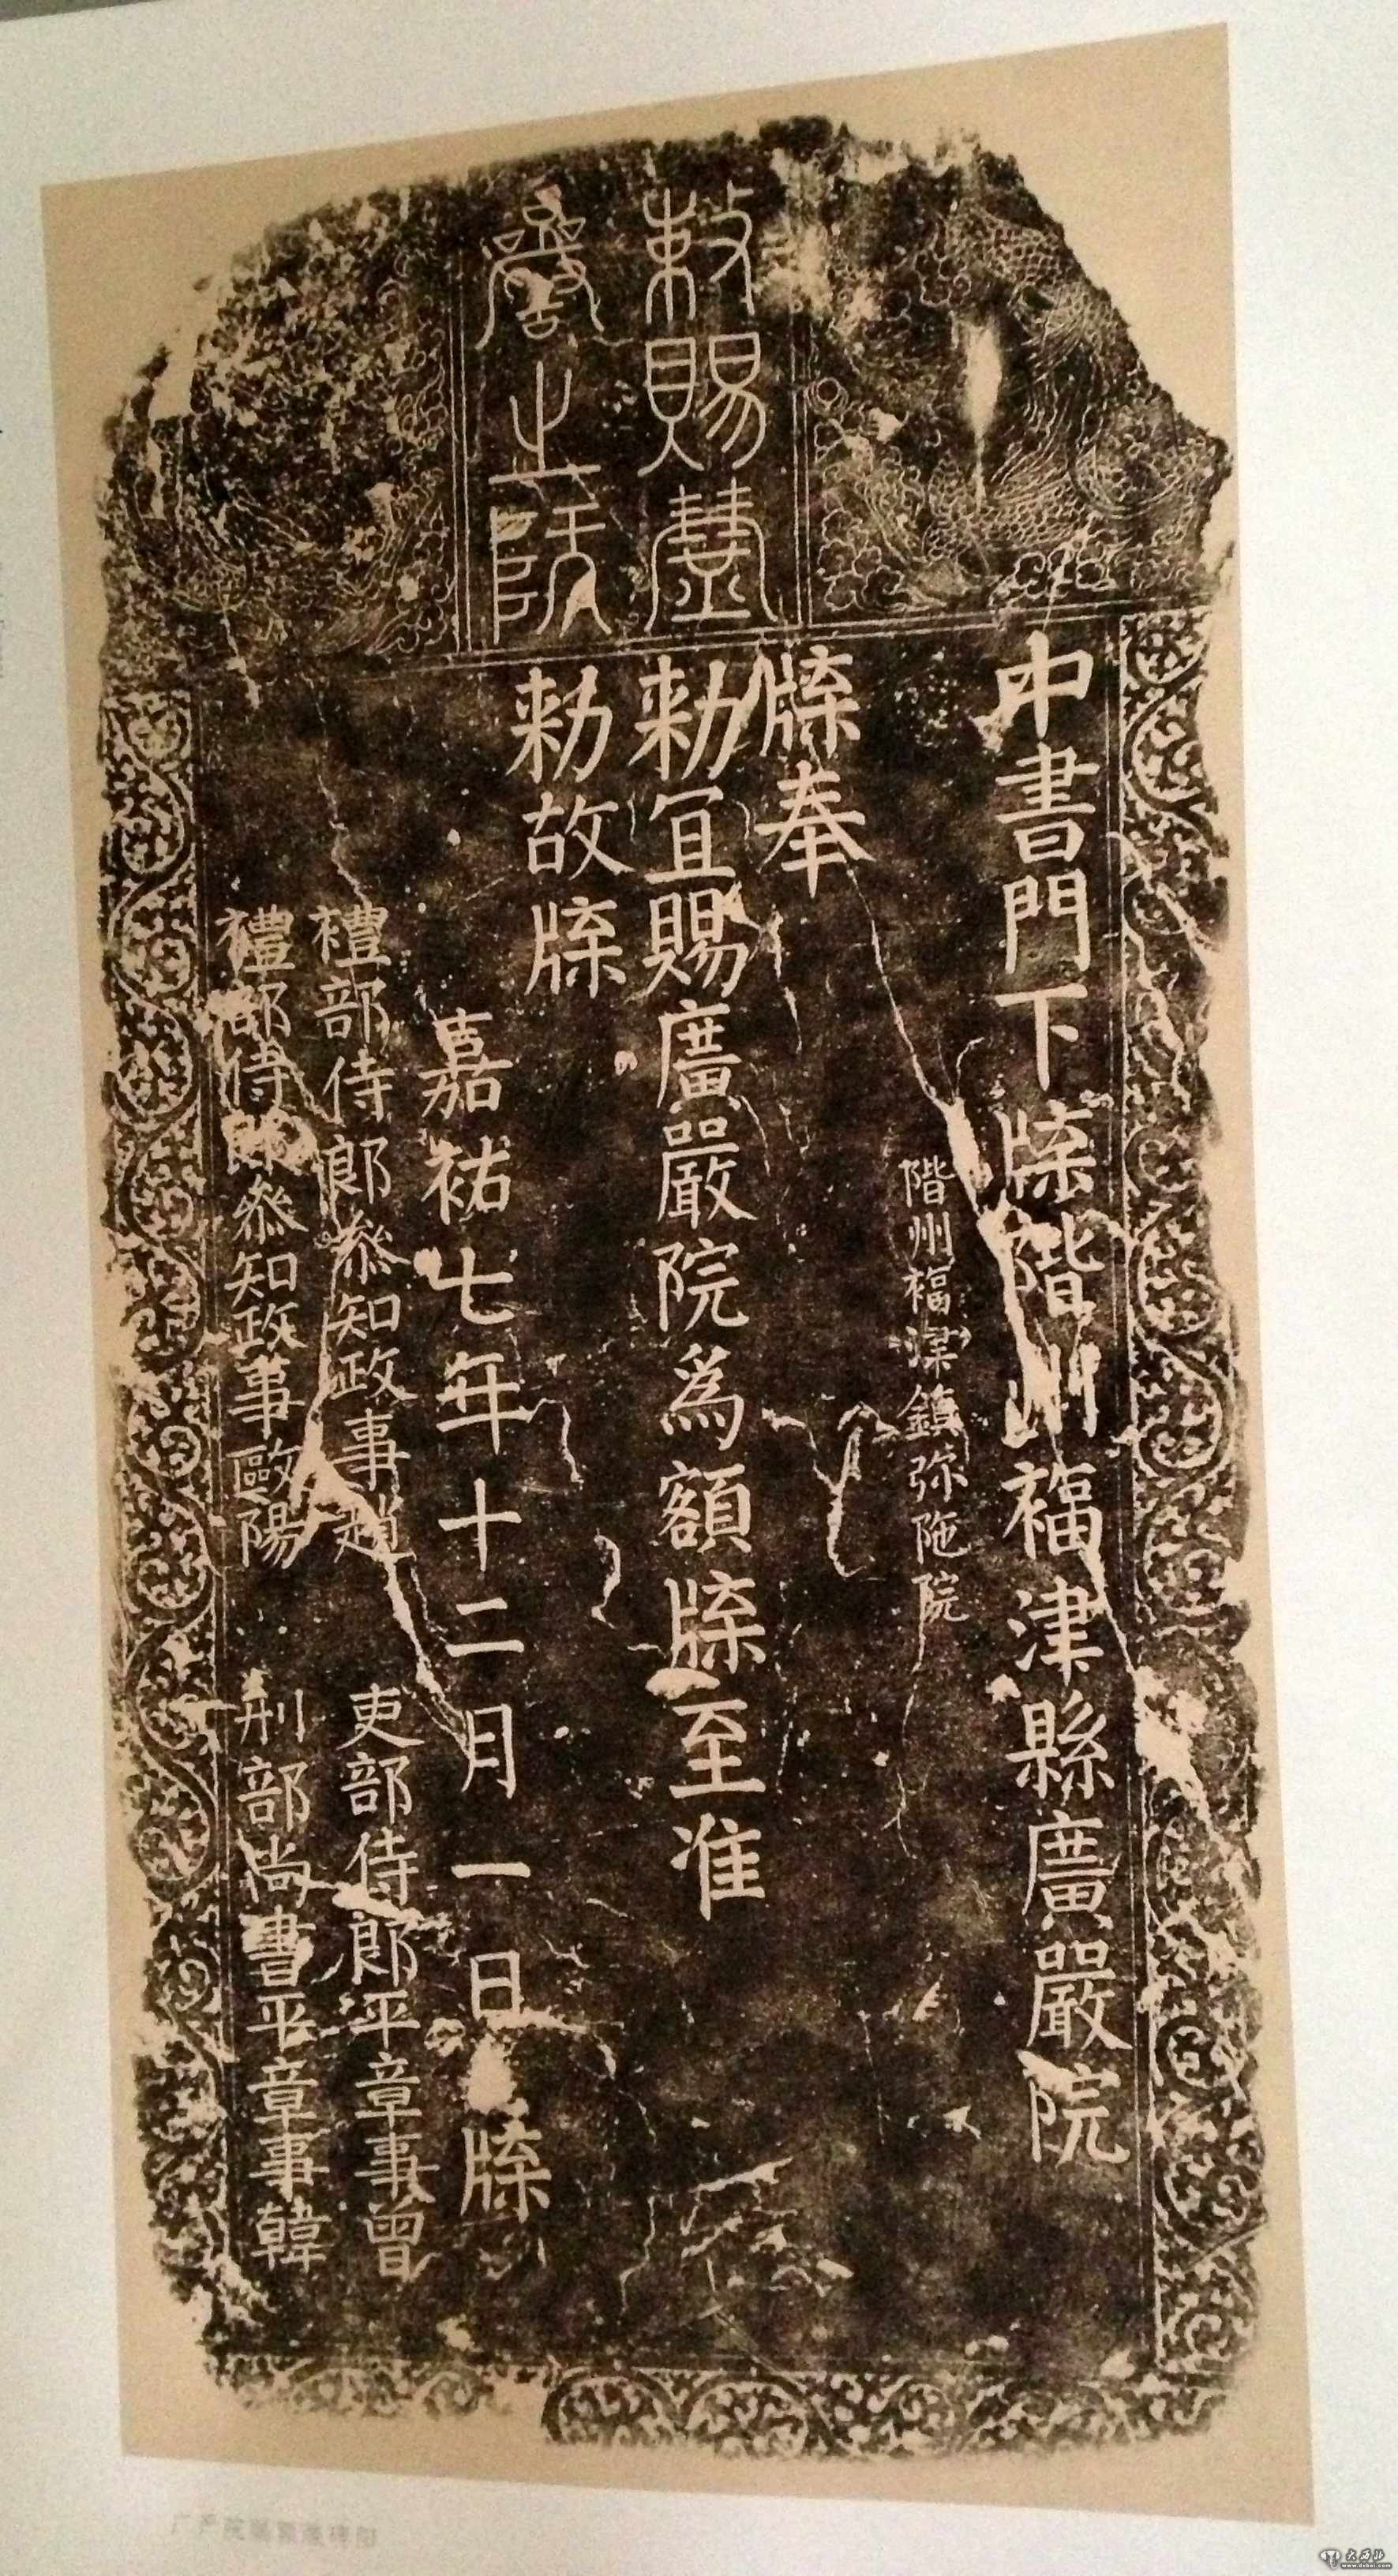 敕賜廣
嚴之院
中書門下牒階州福津縣廣嚴院
階州福津鎮弥陁院
牒奉
勑宜賜廣嚴院為額牒至准
勑故牒
嘉祐七年十二月一日牒
禮部侍郎叅知政事趙
吏部侍郎平章事曾
禮部侍郎叅知政事歐陽
刑部尚書平章事韓
大西北
www.dxbei.com